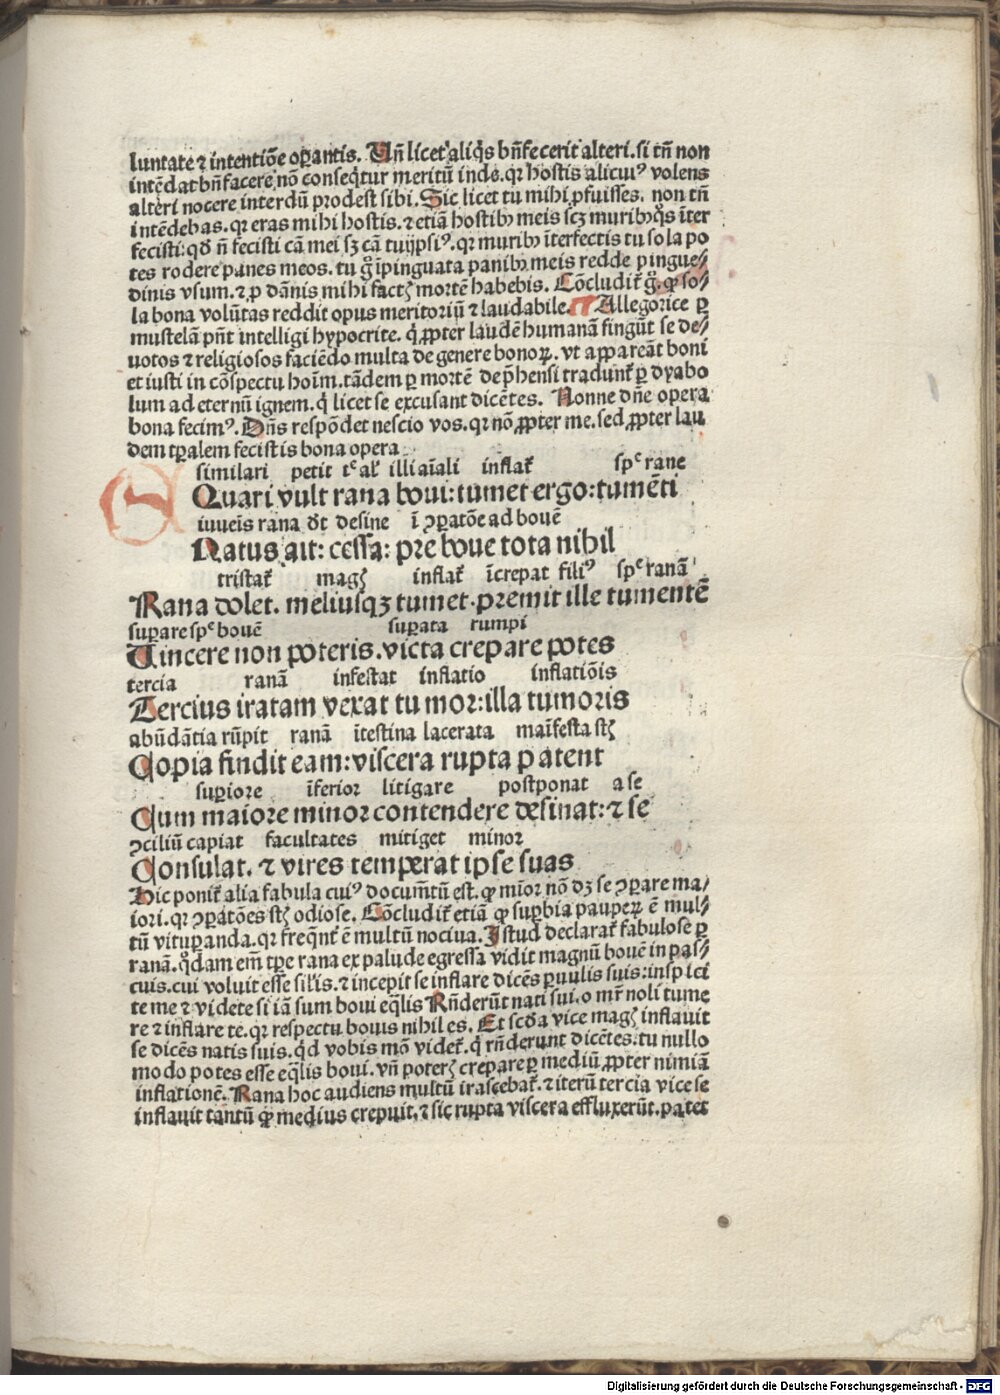 luntate ⁊ intentiõe oꝑantis. Uñ licet aliqͥs bñfecerit alteri. si tñ non
intẽdat bñfacere nõ conseqͥtur meritũ inde. qꝛ hostis alicuiꝰ volens
alteri nocere interdũ prodest sibi. Sic licet tu mihi ꝓfuisses. non tñ
intẽdebas. qꝛ eras mihi hostis. ⁊ etiã hostibꝫ meis scꝫ muribꝫ qͦs iter
fecisti: qð ñ fecisti cã mei sꝫ cã tuijpsiꝰ. qꝛ muribꝫ ĩterfectis tu sola po
tes rodere panes meos. tu gͦ ĩpinguata panibꝫ meis redde pingue⸗
dinis vsum. ⁊ ꝑ dãnis mihi factꝭ mortẽ habebis. Cõcludit᷑ gͦ. ꝙ so⸗
la bona volũtas reddit opus meritoriũ ⁊ laudabile. ¶ Allegorice ꝑ
mustelã pñt intelligi hypocrite. qͥ ꝓpter laudẽ humanã fingũt se de⸗
uotos ⁊ religiosos faciẽdo multa de genere bonoꝝ. vt appareãt boni
et iusti in cõspectu hoĩm. tãdem ꝑ mortẽ dep̃hensi tradunt᷑ ꝑ dyabo
lum ad eternũ ignem. qͥ licet se excusant dicẽtes. Nonne dñe opera
bona fecimꝰ. Dñs respõdet nescio vos. qꝛ nõ ꝓpter me. sed ꝓpter lau
dem tꝑalem fecistis bona opera
similari petit illi aĩali inflat᷑ spᵉ rane
Quari vult rana boui: tumet ergo: tumẽti
iuuẽis rana dt desine ĩ ꝯꝑatõe ad bouẽ
Natus ait: cessa: pre boue tota nihil
tristat᷑ magꝭ inflat᷑ ĩcrepat filiꝰ spᵉ ranã
Rana dolet. meliusqꝫ tumet. premit ille tumentẽ
suꝑare spᵉ bouẽ suꝑata rumpi
Uincere non poteris. victa crepare potes
tercia ranã infestat inflatio inflatiõis
Tercius iratam vexat tumor: illa tumoris
abũdãtia rũpit ranã ĩtestina lacerata maĩfesta stꝭ
Copia findit eam: viscera rupta patent
suꝑiore ĩferior litigare postponat a se
Cum maiore minor contendere desinat: ⁊ se
ꝯciliũ capiat facultates mitiget minor
Consulat. ⁊ vires temperat ipse suas
Hic ponit᷑ alia fabula cuiꝰ documẽtũ est. ꝙ mĩor nõ dꝫ se ꝯꝑare ma⸗
iori. qꝛ ꝯꝑatões stꝭ odiose. Cõcludit᷑ etiã ꝙ suꝑbia pauperꝝ ẽ mul⸗
tũ vituꝑanda. qꝛ freqñt᷑ ẽ multũ nociua. Istud declarat᷑ fabulose ꝑ
ranã. qͦdam em̃ tꝑe rana ex palude egressa vidit magnũ bouẽ in pas⸗
cuis. cui voluit esse silĩs. ⁊ incepit se inflare dicẽs ꝑuulis suis: inspici
te me ⁊ videte si iã sum boui eqͣlis Rñderũt nati sui. o mr̃ noli tume
re ⁊ inflare te. qꝛ respectu bouis nihil es. Et scða vice magꝭ inflauit
se dicẽs natis suis. qͥd vobis mõ videt᷑. qͥ rñderunt dicẽtes. tu nullo
modo potes esse eqͣlis boui. vñ poterꝭ crepare ꝑ mediũ ꝓpter nimiã
inflationẽ. Rana hoc audiens multũ irascebat᷑. ⁊ iterũ tercia vice se
inflauit tantũ ꝙ medius crepuit. ⁊ sic rupta viscera effluxerũt. patet
Digitalisierung gefördert durch die Deutsche Forschungsgemeinschaft - DFG